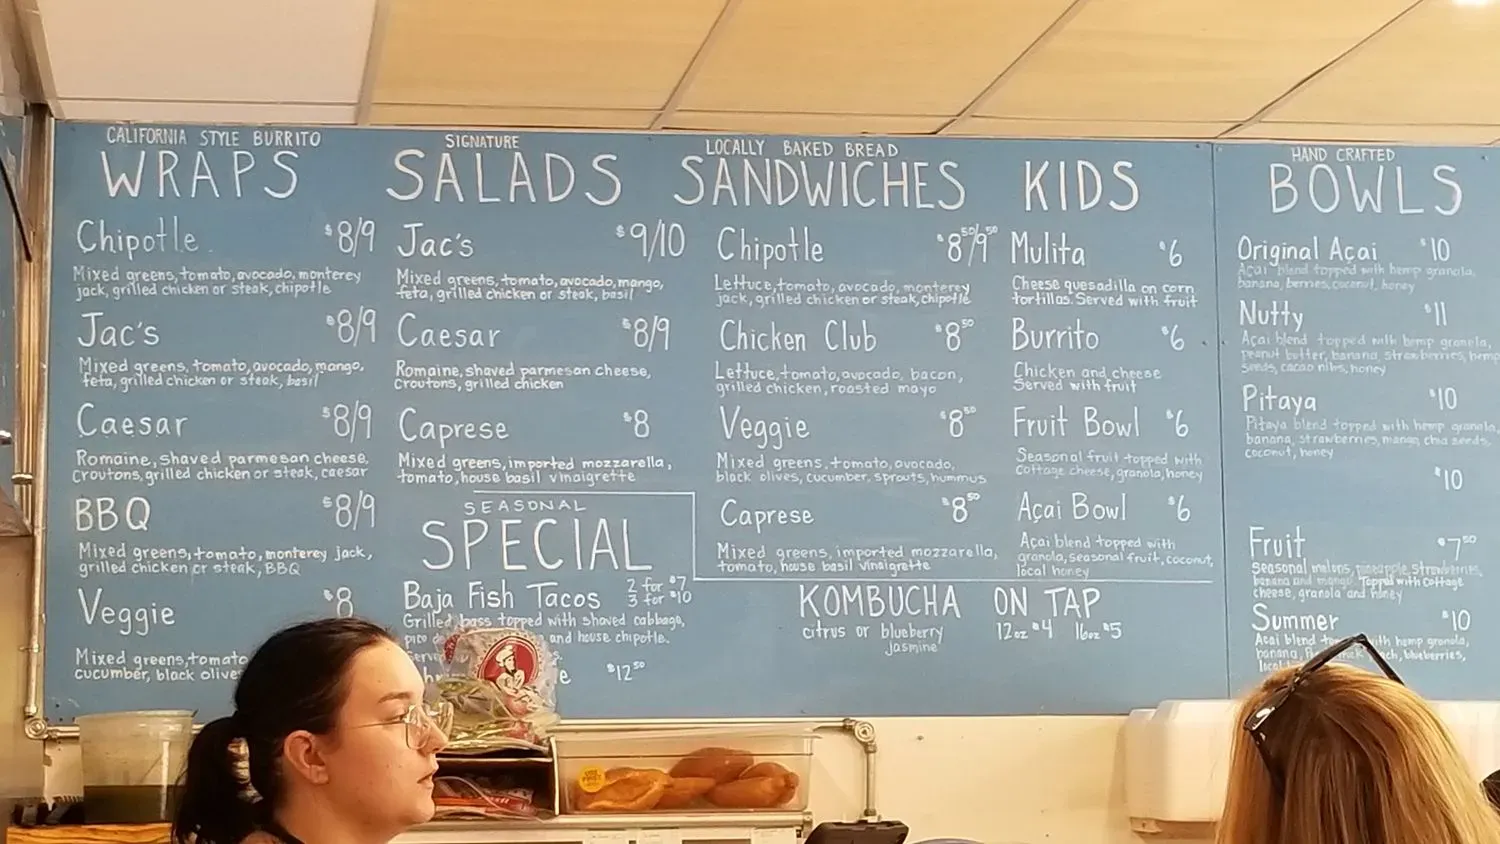 CALIFORNIA STYLE BURRITO
WRAPS
Chipotle $8/9
Mixed greens, tomato, avocado, monterey
jack, grilled chicken or steak, chipotle
Jac's $8/9
Mixed greens, tomato, avocado, mango,
feta, grilled chicken or steak, basil
Caesar $8/9
Romaine, shaved parmesan cheese,
croutons, grilled chicken or steak, caesar
BBQ $8/9
Mixed greens, tomato, monterey jack,
grilled chicken or steak, BBQ
Veggie $8
Mixed greens, tomato
cucumber, black olive
SIGNATURE
SALADS
Jac's $9/10
Mixed greens, tomato, avocado, mango,
feta, grilled chicken or steak, basil
Caesar $8/9
Romaine, shaved parmesan cheese,
croutons, grilled chicken
Caprese $8
Mixed greens, imported mozzarella,
tomato, house basil vinaigrette
SEASONAL
SPECIAL
Baja Fish Tacos 2 for $7
3 for $10
Grilled bass topped with shaved cabbage,
pico and house chipotle.
$12.50
LOCALLY BAKED BREAD
SANDWICHES
Chipotle $8.50/9.50
Lettuce, tomato, avocado, monterey
jack, grilled chicken or steak, chipotle
Chicken Club $8.50
Lettuce, tomato, avocado, bacon,
grilled chicken, roasted mayo
Veggie $8.50
Mixed greens, tomato, avocado,
black olives, cucumber, sprouts, hummus
Caprese $8.50
Mixed greens, imported mozzarella,
tomato, house basil vinaigrette
KIDS
Mulita $6
Cheese quesadilla on corn
tortillas. Served with fruit
Burrito $6
Chicken and cheese
Served with fruit
Fruit Bowl $6
Seasonal fruit topped with
cottage cheese, granola, honey
Açai Bowl $6
Açai blend topped with
granola, seasonal fruit, coconut,
local honey
KOMBUCHA ON TAP
citrus or blueberry 12oz $4 16oz $5
jasmine
HAND CRAFTED
BOWLS
Original Açai $10
Açai blend topped with hemp granola,
banana, berries, coconut, honey
Nutty $11
Açai blend topped with hemp granola,
peanut butter, banana, strawberries, hemp
seeds, cacao nibs, honey
Pitaya $10
Pitaya blend topped with hemp granola,
banana, strawberries, mango, chia seeds,
coconut, honey
$10
Fruit $7.50
Seasonal melons, pineapple, strawberries,
banana and mango. Topped with cottage
cheese, granola and honey
Summer $10
Açai blend with hemp granola,
banana, blueberries,